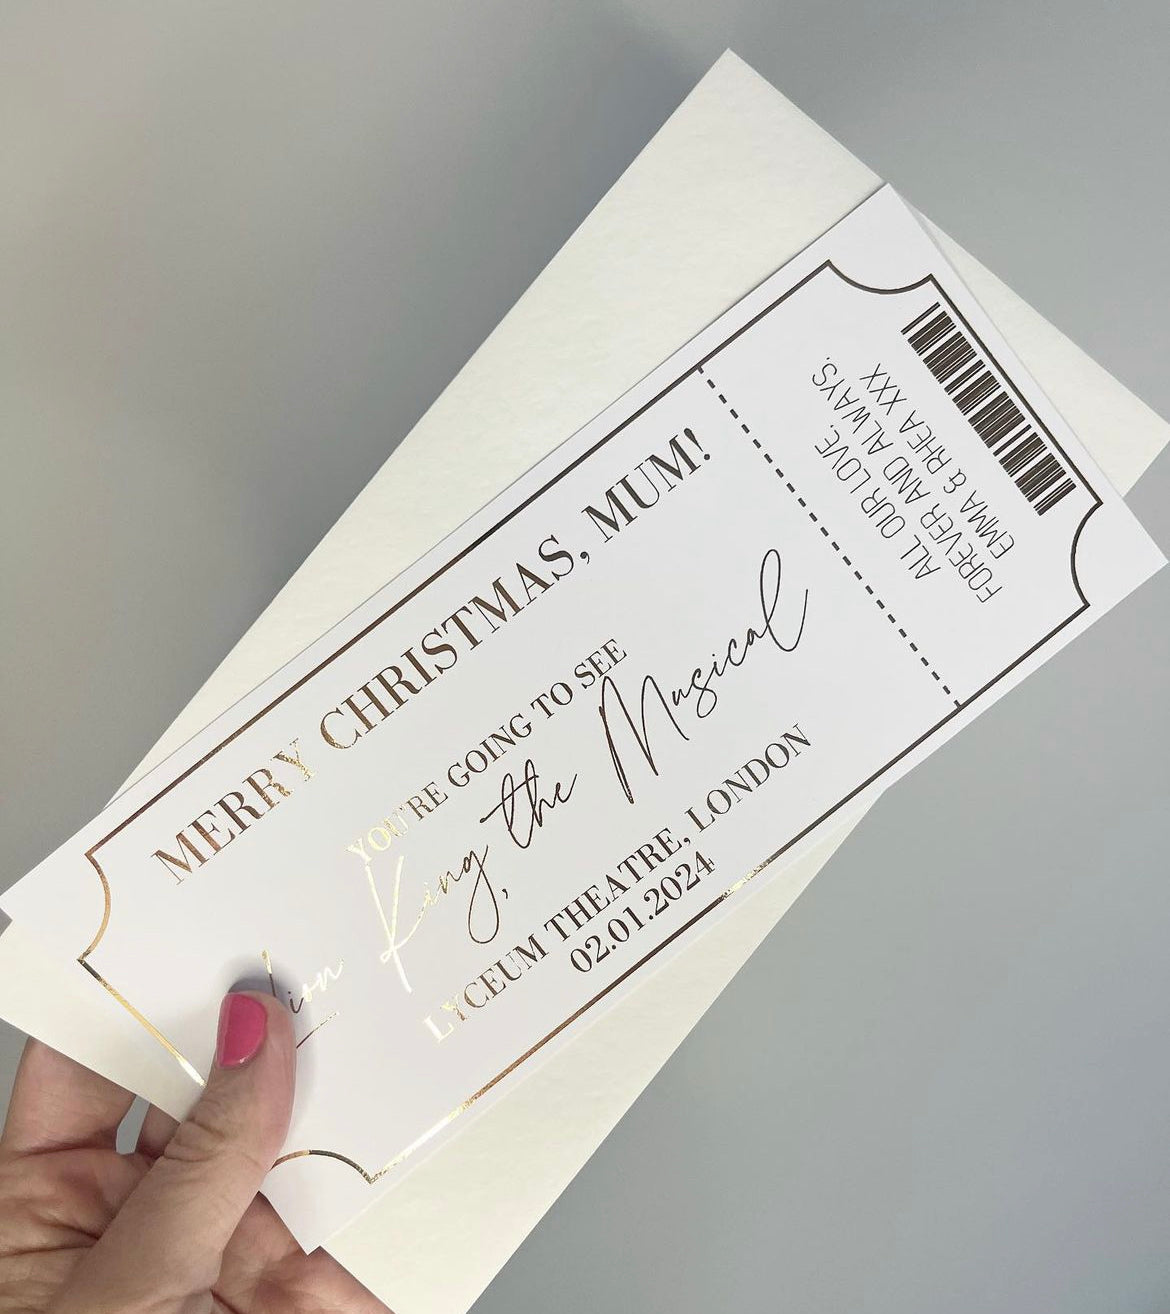 MERRY CHRISTMAS, MUM!
YOU'RE GOING TO SEE
Lion King, the Musical
LYCEUM THEATRE, LONDON
02.01.2024
ALL OUR LOVE,
FOREVER AND ALWAYS.
EMMA & RHEA XXX